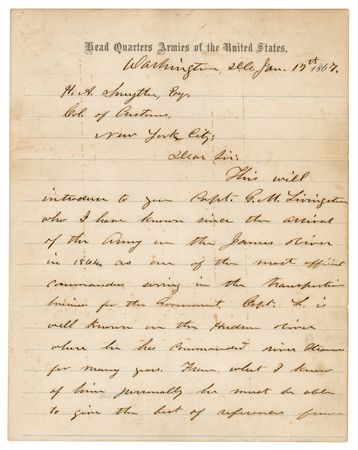 Head Quarters Armies of the United States,
Washington, D.C. Jan. 17th 1867.
H. A. Smythe, Esq.
Col. of Customs,
New York City;
Dear Sir:
This will
introduce to you Capt. G. M. Livingston
who I have known since the arrival
of the Army on the James river
in 1864 as one of the most efficient
commanders serving in the transportation
business for the Government. Capt. L. is
well known on the Hudson river
where he has commanded river steamers
for many years. From what I know
of him personally he must be able
to give the best of references from